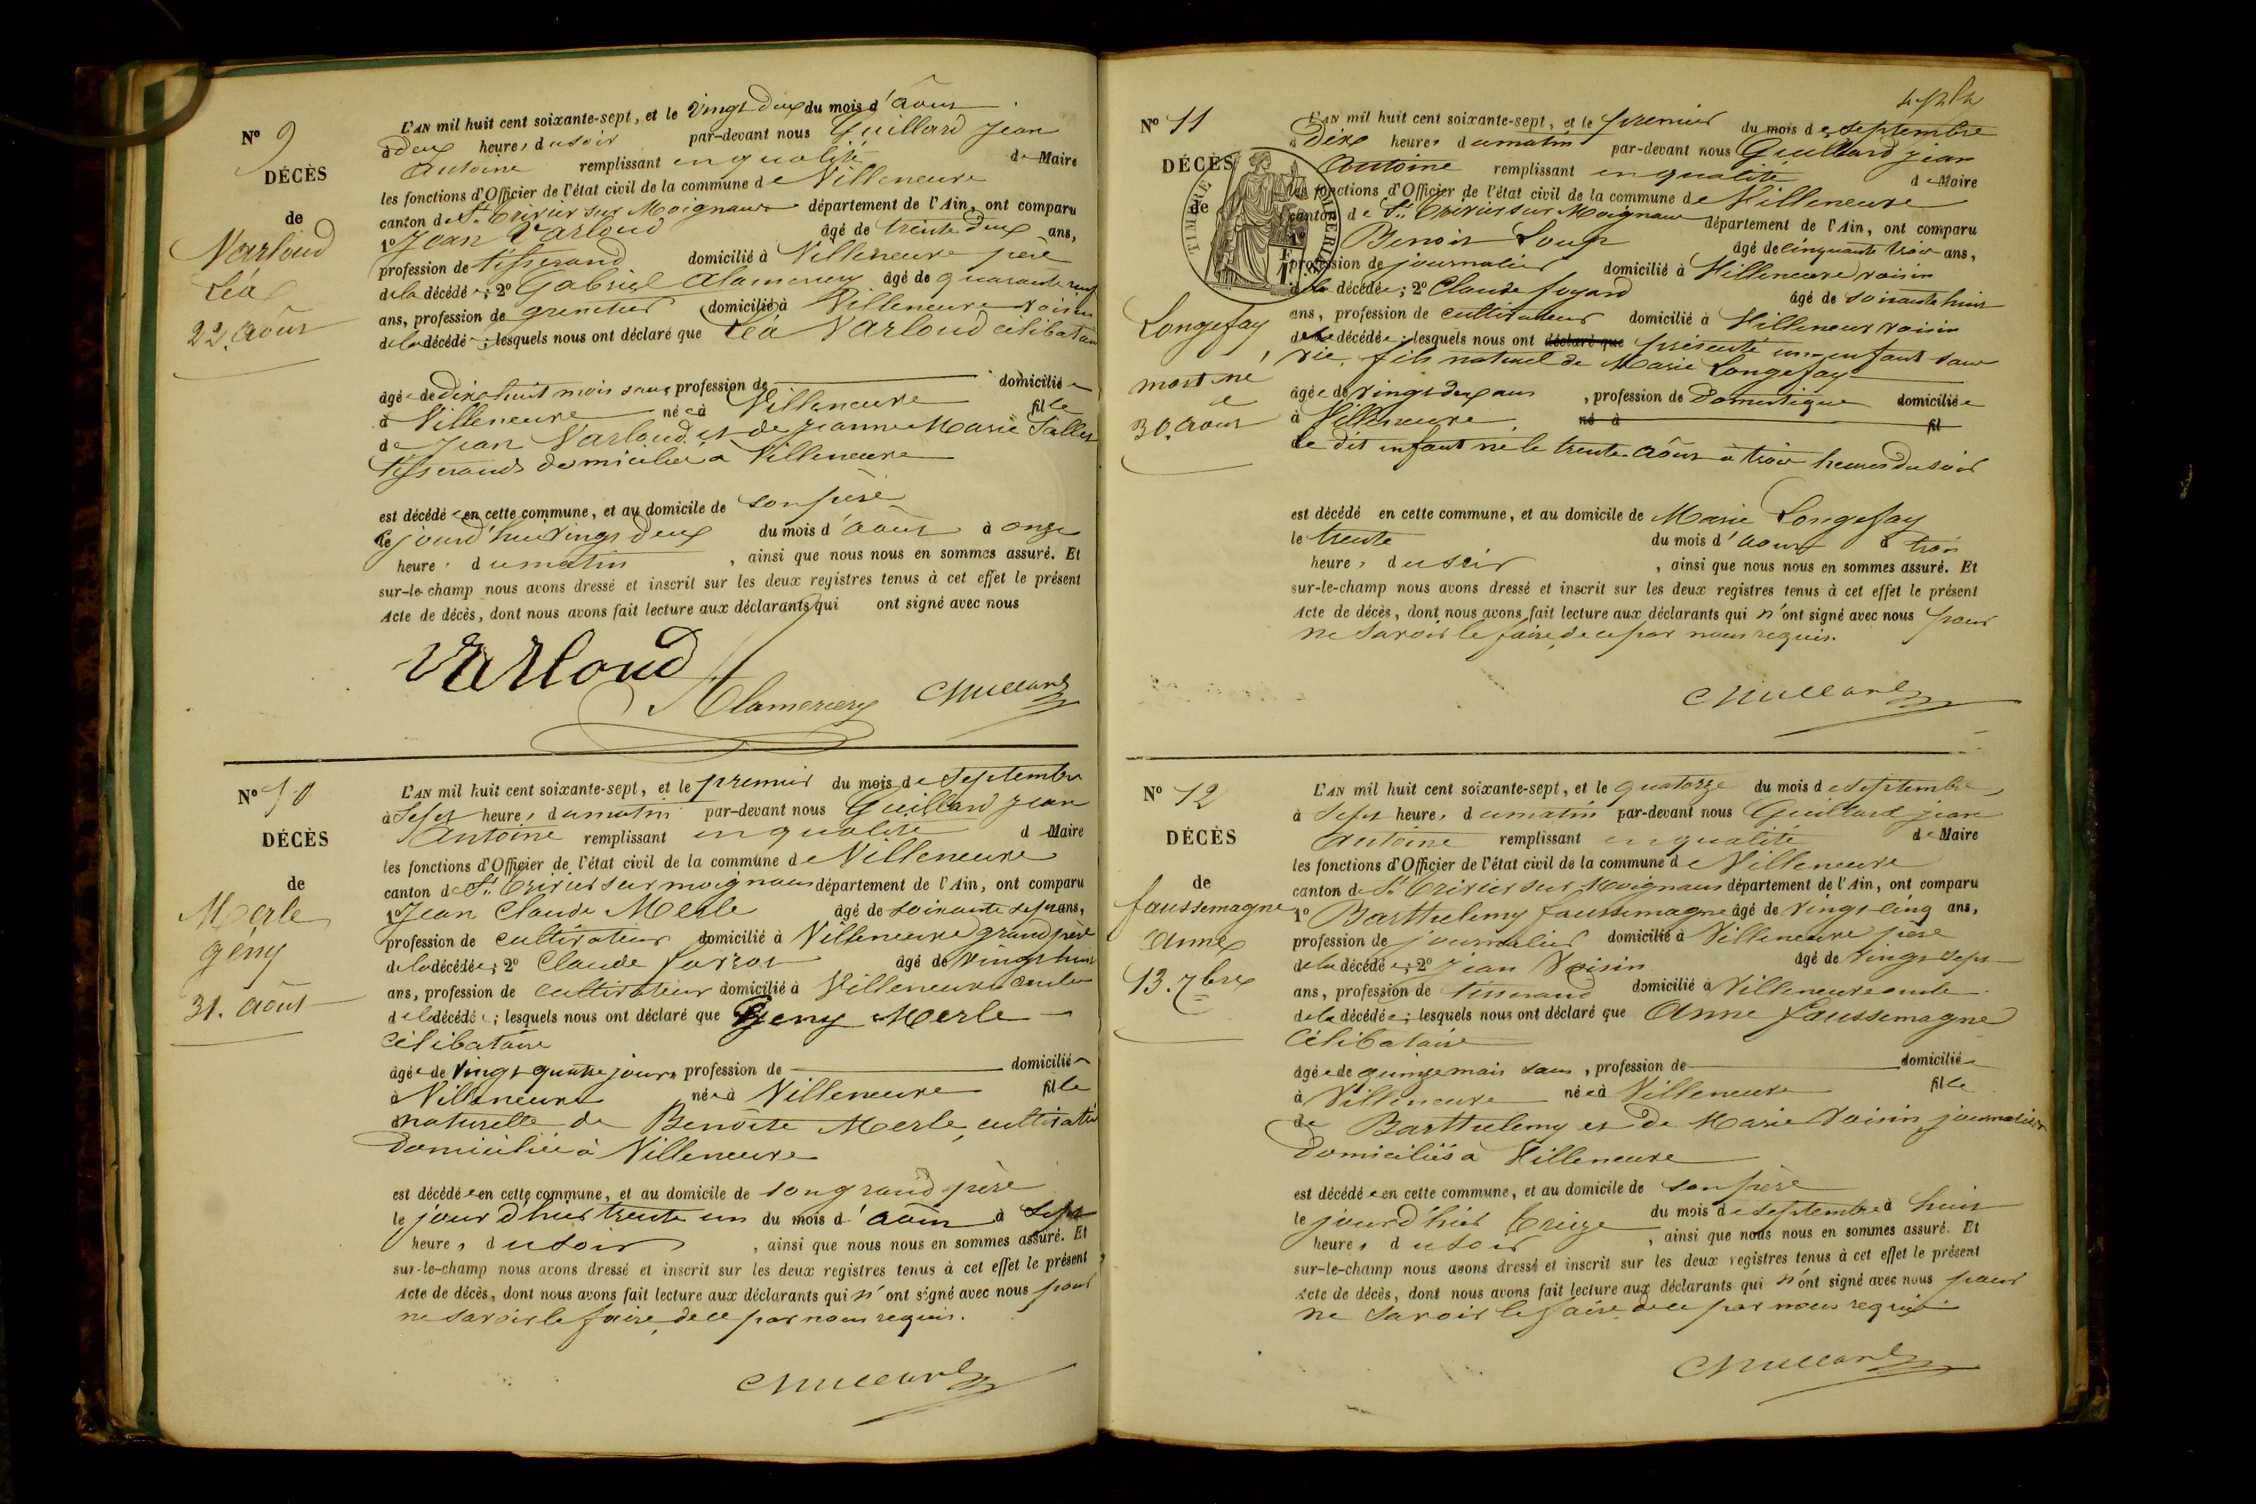 N° 9
DÉCÈS
de
Varloud
Léa
22. Août
L'AN mil huit cent soixante-sept, et le vingt deux du mois d'Août
à deux heures du soir par-devant nous Guillard Jean
Antoine remplissant en qualité de Maire
les fonctions d'Officier de l'état civil de la commune de Villeneuve
canton de St. Trivier sur Moignans département de l'Ain, ont comparu
1° Jean Varloud âgé de trente deux ans,
profession de tisserand domicilié à Villeneuve père
de la décédée; 2° Gabriel Alamercery âgé de quarante neuf
ans, profession de domicilié à Villeneuve voisin
de la décédée; lesquels nous ont déclaré que Léa Varloud célibataire
âgée de dix huit mois sans profession de domiciliée
à Villeneuve née à Villeneuve fille
de Jean Varloud et de Jeanne Marie Salles
tisserands domiciliés à Villeneuve
est décédée en cette commune, et au domicile de son père
le jourd'hui vingt deux du mois d'Août à onze
heures du matin, ainsi que nous nous en sommes assuré. Et
sur-le-champ nous avons dressé et inscrit sur les deux registres tenus à cet effet le présent
Acte de décès, dont nous avons fait lecture aux déclarants qui ont signé avec nous
Varloud
Alamercery Guillard
N° 10
DÉCÈS
de
Merle
gény
31. Août
L'AN mil huit cent soixante-sept, et le premier du mois de Septembre
à Sept heures du matin par-devant nous Guillard Jean
Antoine remplissant en qualité d Maire
les fonctions d'Officier de l'état civil de la commune de Villeneuve
canton de St. Trivier sur moignans département de l'Ain, ont comparu
1° Jean Claude Merle âgé de soixante sept ans,
profession de cultivateur domicilié à Villeneuve grand père
de la décédée; 2° Claude âgé de vingt huit
ans, profession de cultivateur domicilié à Villeneuve oncle
de la décédée; lesquels nous ont déclaré que Geny Merle
Célibataire
âgée de vingt quatre jours profession de domiciliée
à Villeneuve née à Villeneuve fille
naturelle de Benoite Merle, cultivatrice
domiciliée à Villeneuve
est décédée en cette commune, et au domicile de son grand père
le jour d'hier trente un du mois d'Août à Sept
heures du soir, ainsi que nous nous en sommes assuré. Et
sur-le-champ nous avons dressé et inscrit sur les deux registres tenus à cet effet le présent
Acte de décès, dont nous avons fait lecture aux déclarants qui n'ont signé avec nous pour
ne savoir le faire, de ce par nous requis.
Guillard
N° 11
DÉCÈS
de
Longefay
mort né
30. Août
TIMBRE
L'AN mil huit cent soixante-sept, et le premier du mois de Septembre
à Dix heures du matin par-devant nous Guillard jean
Antoine remplissant en qualité de Maire
les fonctions d'Officier de l'état civil de la commune de Villeneuve
canton de St. Trivier sur Moignans département de l'Ain, ont comparu
Benoit Loup âgé de cinquante trois ans,
profession de journalier domicilié à Villeneuve voisin
de la décédée; 2° Claude foyard âgé de soixante huit
ans, profession de cultivateur domicilié à Villeneuve voisin
de la décédée; lesquels nous ont déclaré que présenté un enfant sans
vie, fils naturel de Marie Longefay
âgée de vingt deux ans, profession de Domestique domiciliée
à Villeneuve, né à fil
le dit enfant né le trente Août à trois heures du soir
est décédé en cette commune, et au domicile de Marie Longefay
le trente du mois d'Août à trois
heures du soir, ainsi que nous nous en sommes assuré. Et
sur-le-champ nous avons dressé et inscrit sur les deux registres tenus à cet effet le présent
Acte de décès, dont nous avons fait lecture aux déclarants qui n'ont signé avec nous pour
ne savoir le faire, de ce par nous requis.
Guillard
N° 12
DÉCÈS
de
faussemagne
Anne
13. 7bre
L'AN mil huit cent soixante-sept, et le quatorze du mois de septembre
à Sept heures du matin par-devant nous Guillard jean
Antoine remplissant en qualité de Maire
les fonctions d'Officier de l'état civil de la commune de Villeneuve
canton de St. Trivier sur Moignans département de l'Ain, ont comparu
1° Barthelemy faussemagne âgé de vingt-cinq ans,
profession de journalier domicilié à Villeneuve père
de la décédée; 2° jean Voisin âgé de vingt sept
ans, profession de tisserand domicilié à Villeneuve oncle
de la décédée; lesquels nous ont déclaré que Anne faussemagne
Célibataire
âgée de quinze mois sans, profession de domiciliée
à Villeneuve née à Villeneuve fille
de Barthelemy et de Marie Voisin journaliers
domiciliés à Villeneuve
est décédée en cette commune, et au domicile de son père
le jourd'hier treize du mois de septembre à huit
heures du soir, ainsi que nous nous en sommes assuré. Et
sur-le-champ nous avons dressé et inscrit sur les deux registres tenus à cet effet le présent
Acte de décès, dont nous avons fait lecture aux déclarants qui n'ont signé avec nous pour
ne savoir le faire de ce par nous requis.
Guillard